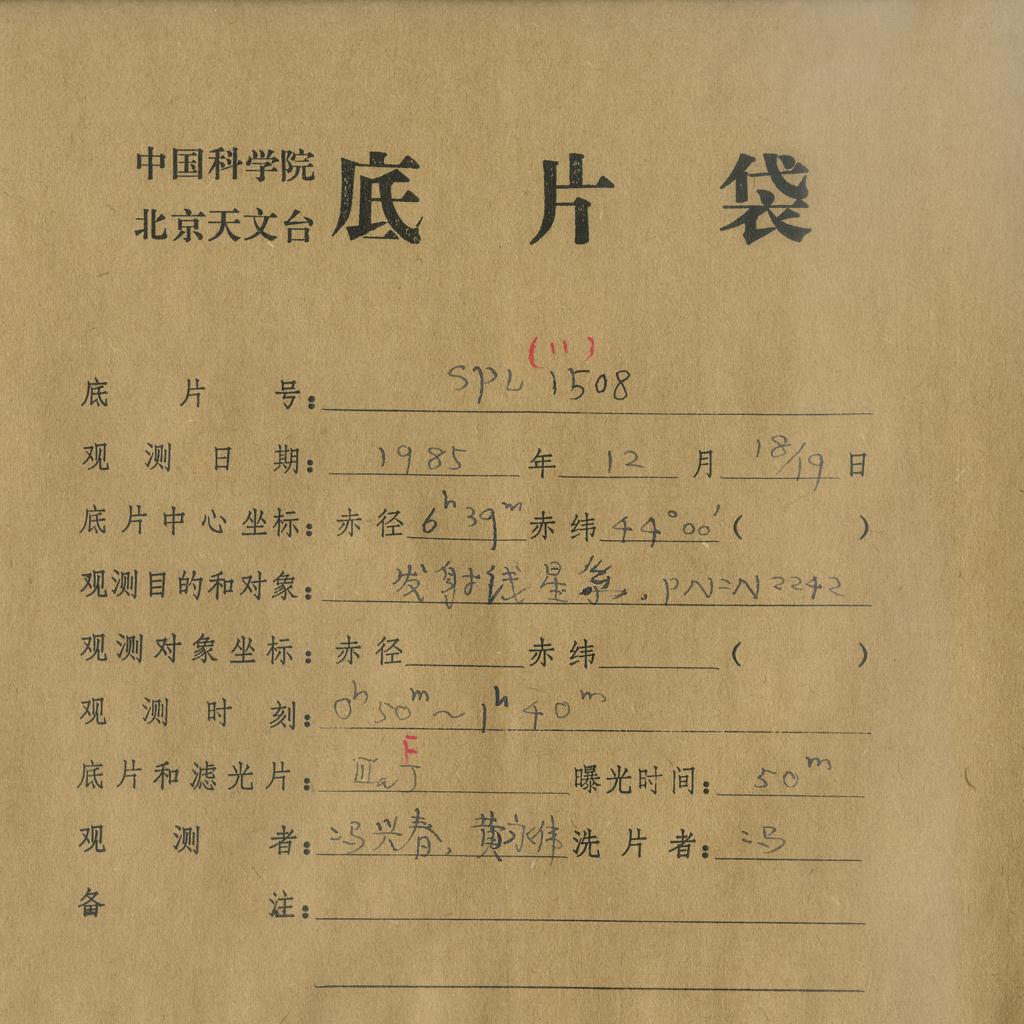 中国科学院
北京天文台
底片袋
(11)
底片号: SPL 1508
观测日期: 1985 年 12 月 18/19 日
底片中心坐标: 赤径 6h39m 赤纬 44°00′ ( )
观测目的和对象: 发射线星系. PN=N2242
观测对象坐标: 赤径 赤纬 ( )
观测时刻: 0h50m~1h40m
F
底片和滤光片: IIIaJ 曝光时间: 50m
观测者: 冯兴春、黄永伟 洗片者: 冯
备注: